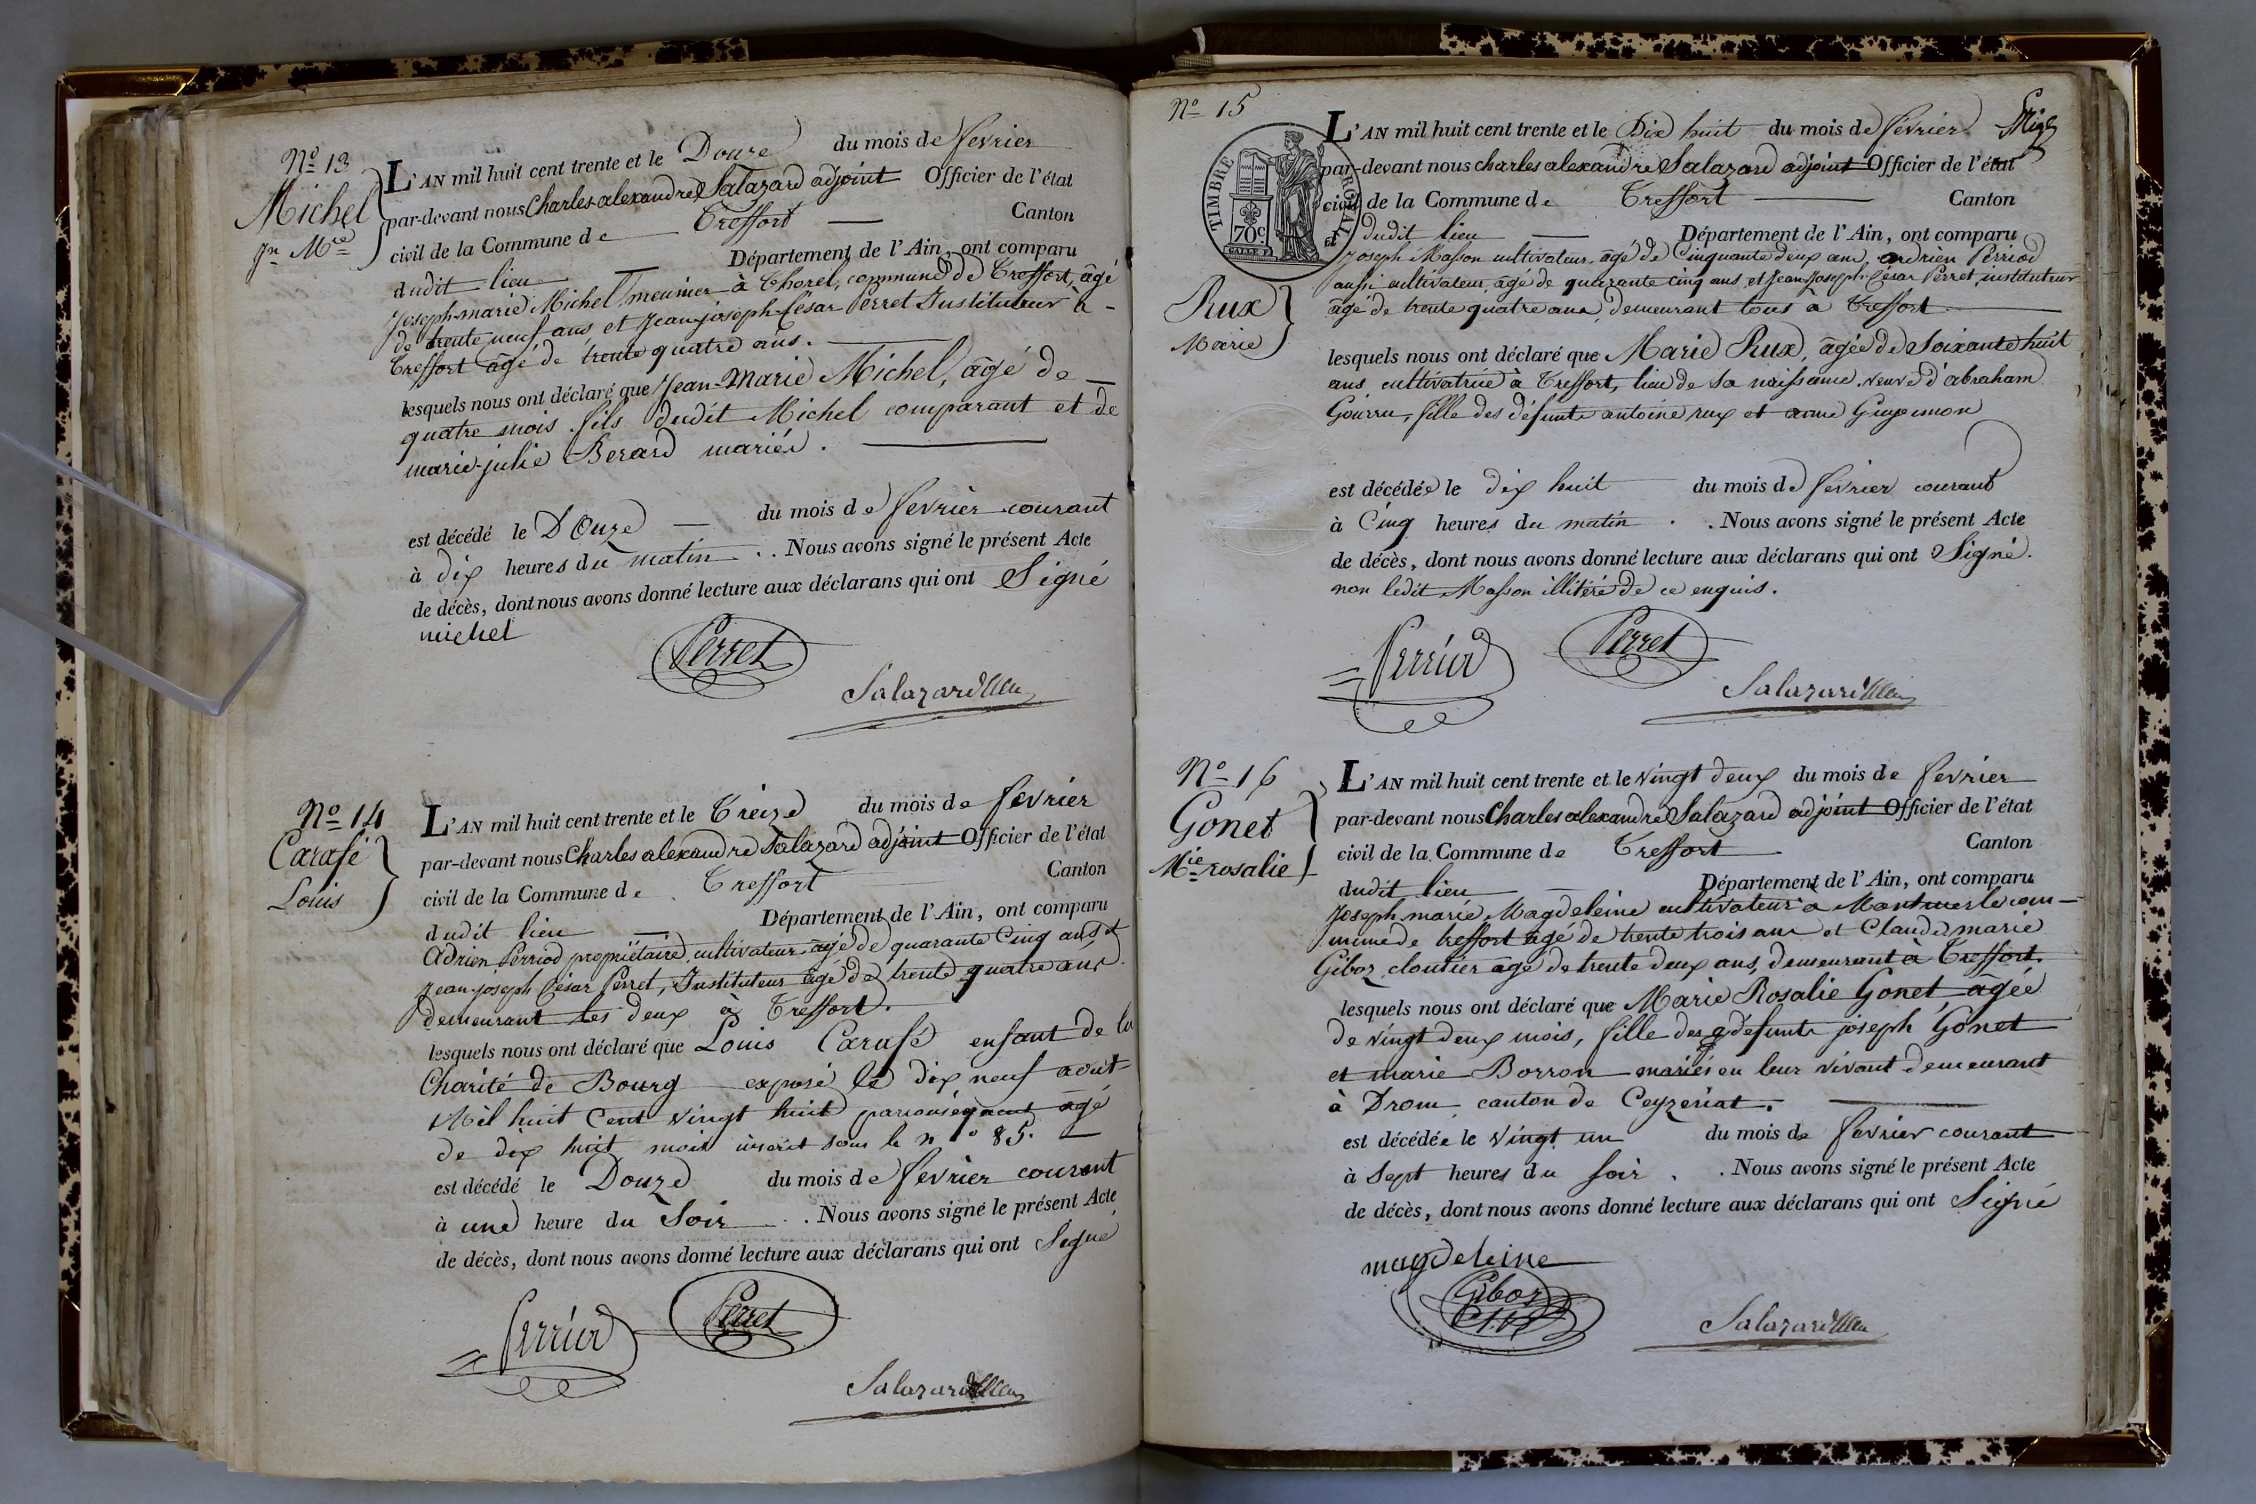 No 13
Michel
Jn Mie
L'AN mil huit cent trente et le Douze du mois de fevrier
par-devant nous Charles alexandre Salazard adjoint Officier de l'état
civil de la Commune de Treffort Canton
dudit lieu Département de l'Ain, ont comparu
Joseph marie Michel meunier à Thorel, commune de Treffort, âgé
de trente neuf ans et Jean joseph César Perret Instituteur a
Treffort âgé de trente quatre ans.
lesquels nous ont déclaré que Jean-Marie Michel, âgé de
quatre mois fils dudit Michel comparant et de
marie-julie Berard mariés.
est décédé le Douze du mois de fevrier courant
à dix heures du matin . . Nous avons signé le présent Acte
de décès, dont nous avons donné lecture aux déclarans qui ont Signé
michel
Perret
Salazard
No 14
Carafé
Louis
L'AN mil huit cent trente et le Treize du mois de fevrier
par-devant nous Charles alexandre Salazard adjoint Officier de l'état
civil de la Commune de Treffort Canton
dudit lieu Département de l'Ain, ont comparu
Adrien Perriod propriétaire cultivateur âgé de quarante Cinq ans et
jean joseph César Perret, Instituteur âgé de trente quatre ans
demeurant les deux à Treffort.
lesquels nous ont déclaré que Louis Carafé enfant de la
Charité de Bourg exposé le dix neuf aout
Mil huit Cent vingt huit parconséquent âgé
de dix huit mois inscrit sous le no 85.
est décédé le Douze du mois de fevrier courant
à une heure du Soir . . Nous avons signé le présent Acte
de décès, dont nous avons donné lecture aux déclarans qui ont Signé
Perriod
Perret
Salazard
No 15
TIMBRE ROYAL
70c
L'AN mil huit cent trente et le Dix huit du mois de février
par-devant nous charles alexandre Salazard adjoint Officier de l'état
civil de la Commune de Treffort Canton
dudit lieu Département de l'Ain, ont comparu
Joseph Masson cultivateur âgé de Cinquante deux ans, andrien Perriod
aussi cultivateur âgé de quarante cinq ans et Jean Joseph César Perret instituteur
âgé de trente quatre ans, demeurant tous à Treffort
Rux
Marie
lesquels nous ont déclaré que Marie Rux, âgée de Soixante huit
ans cultivatrice à Treffort, lieu de sa naissance veuve d'abraham
Gourru, fille des défunts antoine rux et anne Guyomon
est décédée le dix huit du mois de février courant
à Cinq heures du matin . . Nous avons signé le présent Acte
de décès, dont nous avons donné lecture aux déclarans qui ont Signé.
non ledit Masson illitéré de ce enquis.
Perriod
Perret
Salazard
No 16
Gonet
Mie rosalie
L'AN mil huit cent trente et le vingt deux du mois de fevrier
par-devant nous Charles alexandre Salazard adjoint Officier de l'état
civil de la Commune de Treffort Canton
dudit lieu Département de l'Ain, ont comparu
Joseph marie Magdeleine cultivateur à Montmerle com-
mune de treffort âgé de trente trois ans et Claude marie
Giboz cloutier âgé de trente deux ans, demeurant à Treffort.
lesquels nous ont déclaré que Marie Rosalie Gonet âgée
de vingt deux mois, fille des défunts joseph Gonet
et marie Borron mariés en leur vivant demeurant
à Drom canton de Ceyzeriat.
est décédée le vingt un du mois de fevrier courant
à Sept heures du soir . . Nous avons signé le présent Acte
de décès, dont nous avons donné lecture aux déclarans qui ont Signé
magdeleine
Giboz
Salazard